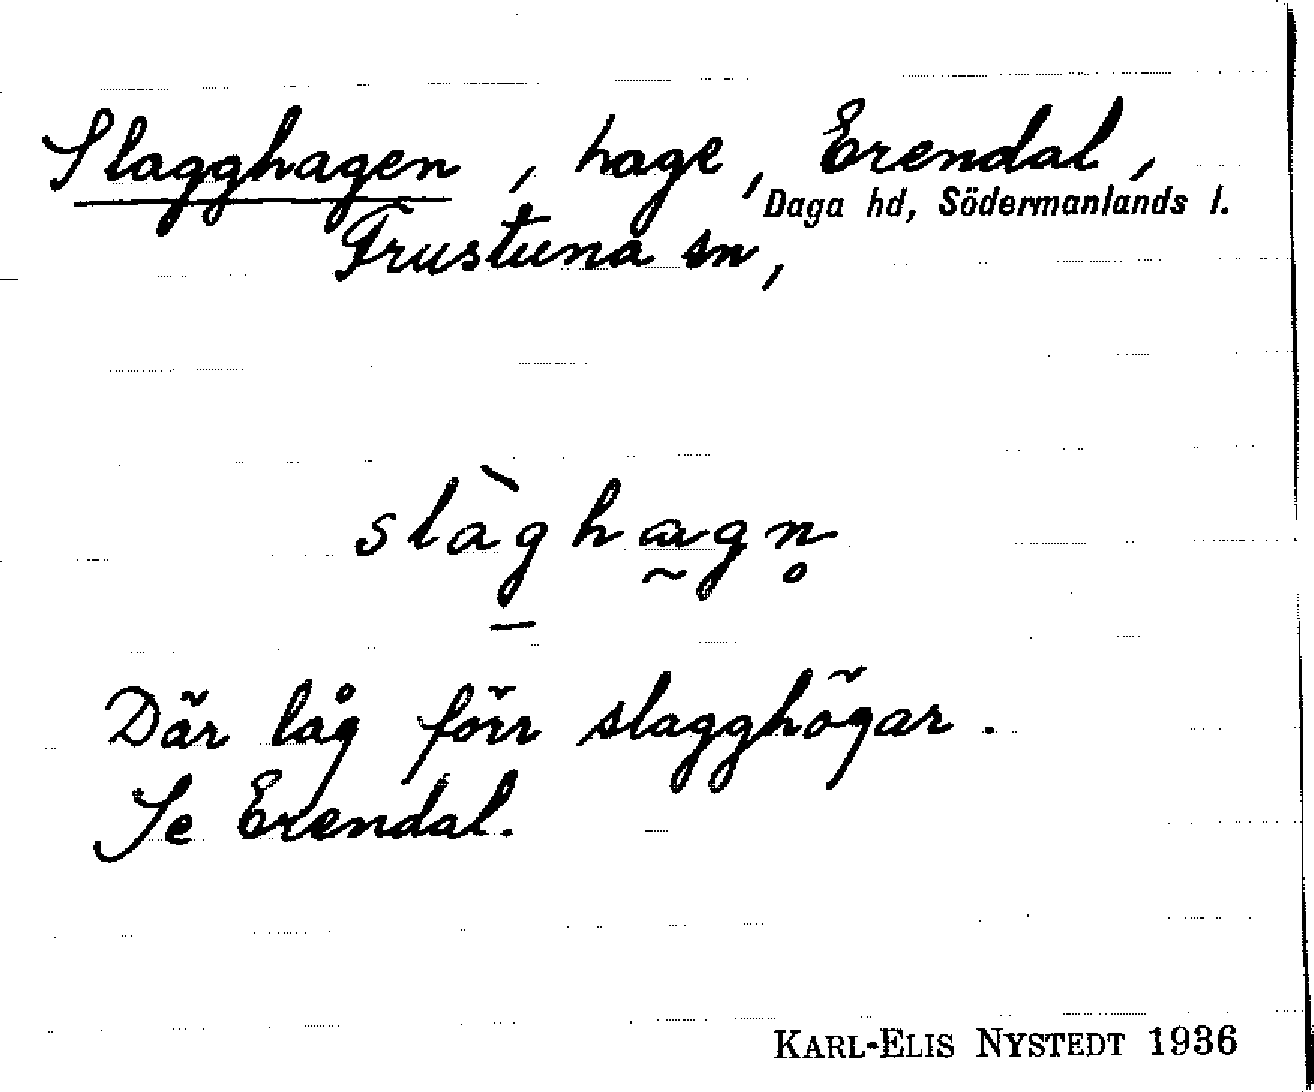 Slagghagen, hage, Erendal,
Daga hd, Södermanlands l.
Frustuna sn,
slàghɑgn̥
Där låg förr slagghögar.
Se Erendal.
KARL-ELIS NYSTEDT 1936